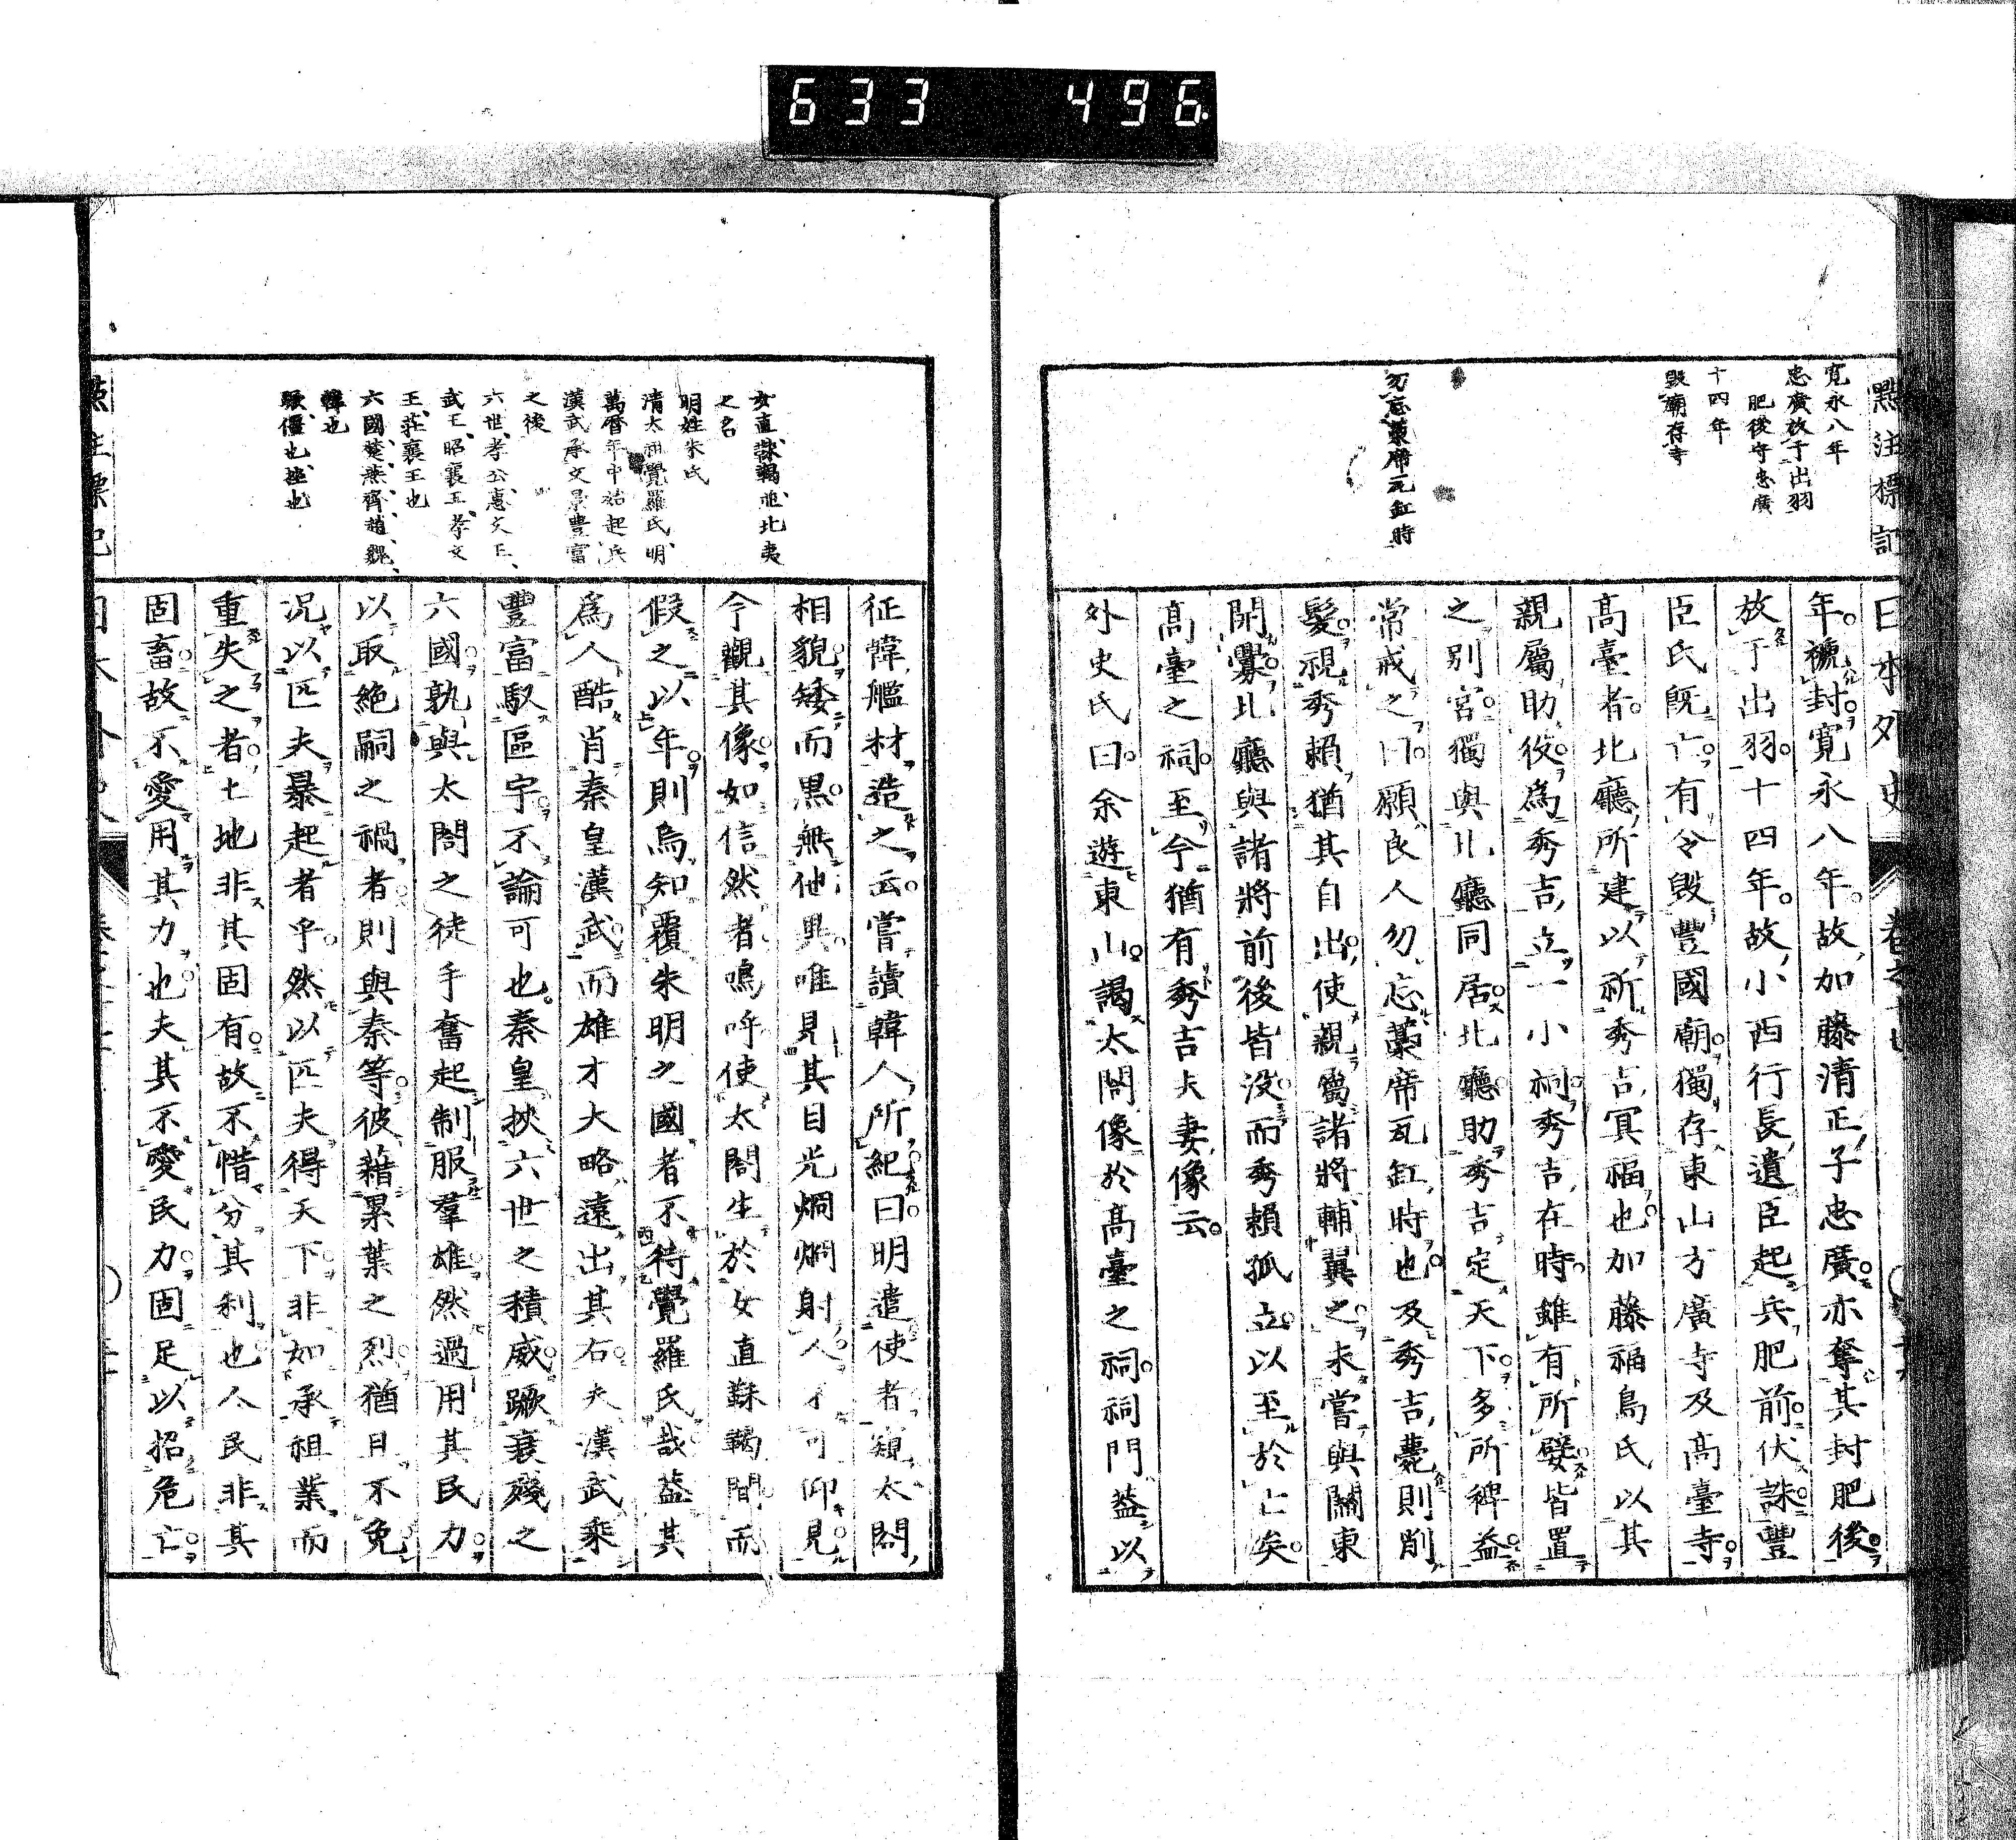 633 496.
點注標記
日本外史
寛永八年
忠廣放于出羽
肥後守忠廣
十四年
毀廟存寺
勿忘藁席瓦缸時
年。褫封。寛永八年。故加藤清正子忠廣。亦奪其封肥後。
放于出羽。十四年。故小西行長遺臣起兵肥前。伏誅。豐
臣氏既亡。有令毀豐國廟。獨存東山方廣寺及高臺寺。
高臺者。北廳所建。以祈秀吉冥福也。加藤福島氏以其
親屬助役。爲秀吉立一小祠。秀吉在時。雖有所嬖。皆置
之別宮。獨與北廳同居。北廳助秀吉定天下。多所裨益。
常戒之曰。願良人勿忘藁席瓦缸時也。及秀吉薨。則削
髮。視秀賴猶其自出。使親屬諸將輔翼之。未嘗與關東
開釁。北廳與諸將前後皆沒。而秀賴孤立。以至於亡矣。
高臺之祠。至今猶有秀吉夫妻像云。
外史氏曰。余遊東山。謁太閤像於高臺之祠。祠門蓋以
女直、靺鞨、並北夷
之名
明姓朱氏
清太祖覺羅氏、明
萬曆年中始起兵
漢武承文景豐富
之後
六世、孝公、惠文王、
武王、昭襄王、孝文
王、莊襄王也
六國、楚、燕、齊、趙、魏、
韓也
蹶、僵也、拯也
征韓艦材造之云。嘗讀韓人所紀。曰。明遣使者覘太閤。
相貌矮而黒。無他異。唯見其目光烱烱射人。不可仰見。
今觀其像。如信然者。嗚呼。使太閤生於女直靺鞨間。而
假之以年。則烏知覆朱明之國者。不待覺羅氏哉。蓋其
爲人。酷肖秦皇漢武。而雄才大略。遠出其右。夫漢武乘
豐富。馭區宇。不論可也。秦皇挾六世之積威。蹶衰殘之
六國。孰與太閤之徒手奮起。制服羣雄。然過用其民力。
以取絶嗣之禍者。則與秦等。彼藉累葉之烈。猶且不免。
況以匹夫暴起者乎。然以匹夫得天下。非如承祖業而
重失之者。土地非其固有。故不惜分其利也。人民非其
固畜。故不愛用其力也。夫其不愛民力。固足以招危亡。